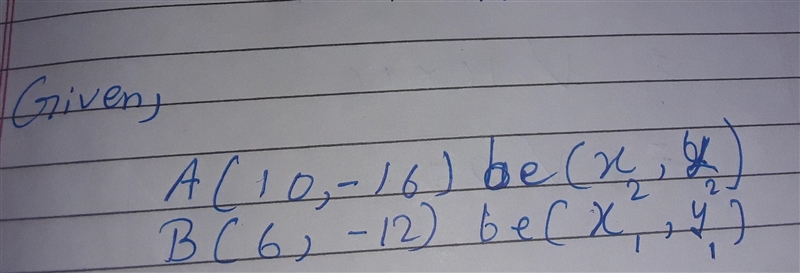 Given,
A(10,-16) be (x₂, y₂)
B(6, -12) be (x₁, y₁)